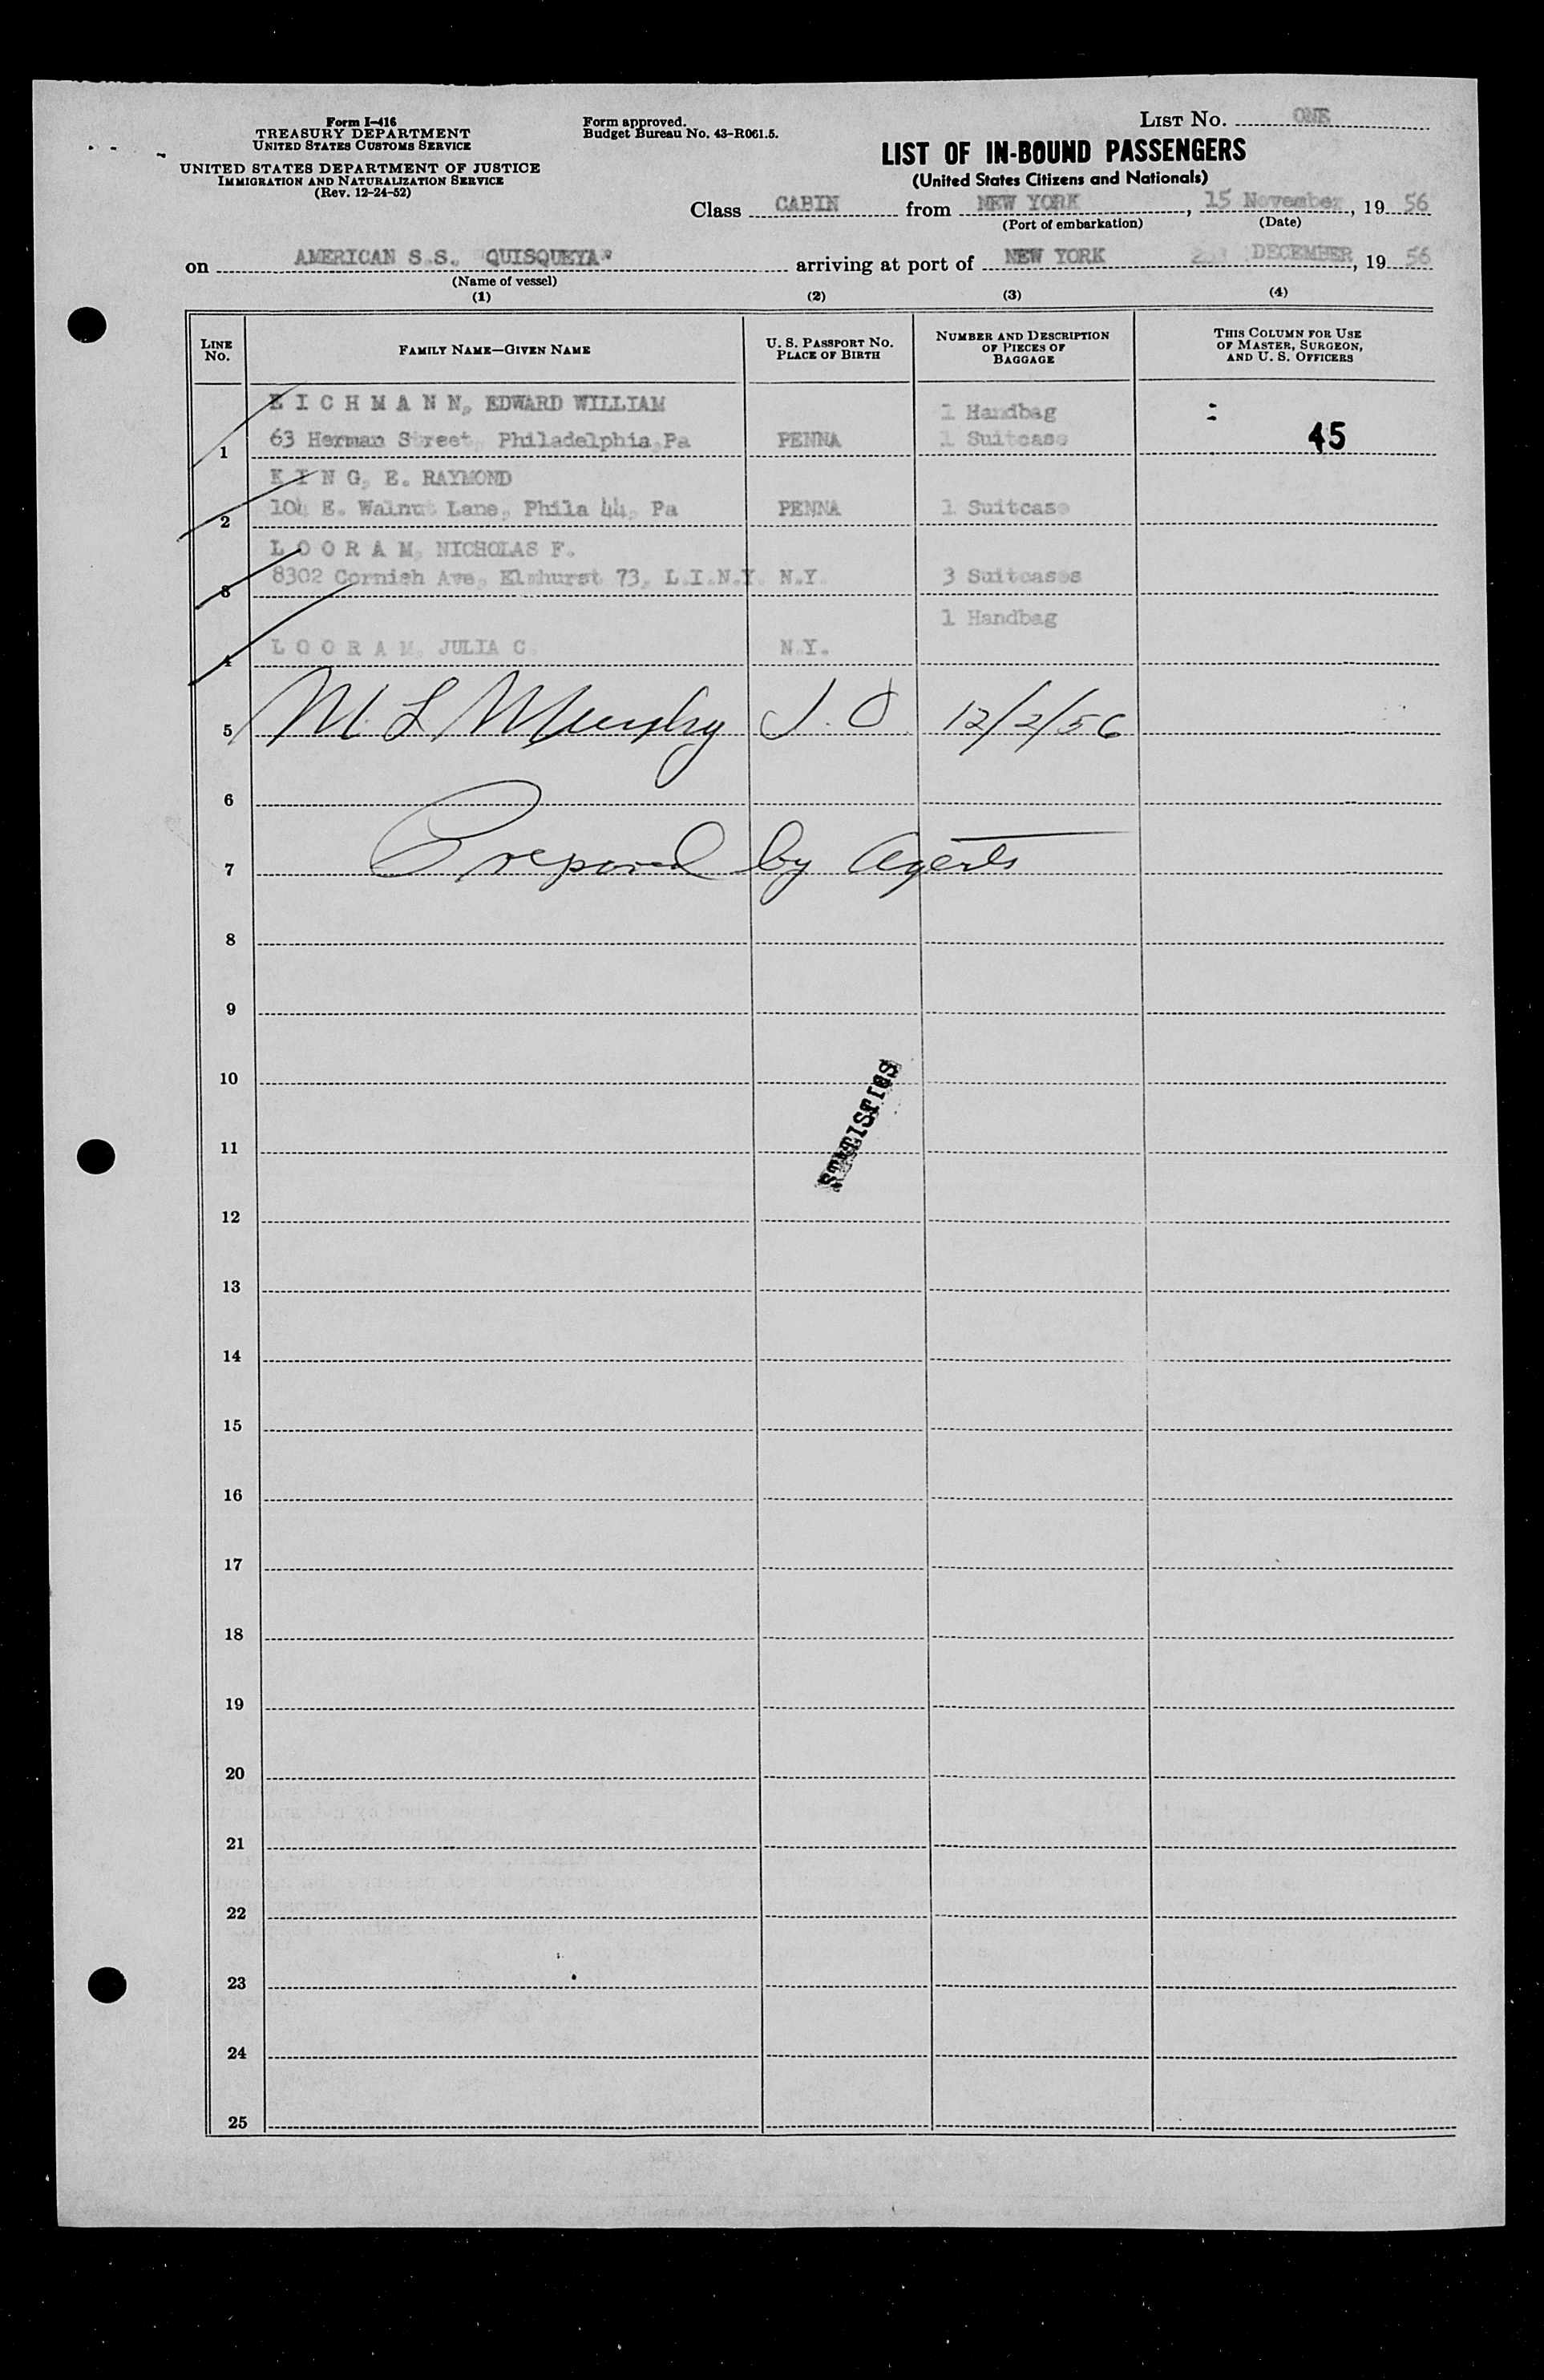 Form I-416
TREASURY DEPARTMENT
UNITED STATES CUSTOMS SERVICE
UNITED STATES DEPARTMENT OF JUSTICE
IMMIGRATION AND NATURALIZATION SERVICE
(Rev. 12-24-52)
Form approved.
Budget Bureau No. 43-R061.5.
LIST No. ONE
LIST OF IN-BOUND PASSENGERS
(United States Citizens and Nationals)
Class CABIN from NEW YORK, 15 November, 19 56
(Port of embarkation) (Date)
on AMERICAN S.S. QUISQUEYA" arriving at port of NEW YORK DECEMBER, 19 56
(Name of vessel)
(1) (2) (3) (4)
LINE No. FAMILY NAME—GIVEN NAME U. S. PASSPORT No. PLACE OF BIRTH NUMBER AND DESCRIPTION OF PIECES OF BAGGAGE THIS COLUMN FOR USE OF MASTER, SURGEON, AND U. S. OFFICERS
E I C H M A N N, EDWARD WILLIAM 1 Handbag
1 63 Herman Street, Philadelphia, Pa PENNA 1 Suitcase 45
K I N G, E. RAYMOND
2 104 E. Walnut Lane, Phila 44, Pa PENNA 1 Suitcase
L O O R A M, NICHOLAS F.
3 8302 Cornish Ave, Elmhurst 73, L.I.N.Y. N.Y. 3 Suitcases
1 Handbag
4 L O O R A M, JULIA C. N.Y.
5 M. L Murphy 12/2/56
6
7 Prepared by Agents
8
9
10
STATISTICS
11
12
13
14
15
16
17
18
19
20
21
22
23
24
25